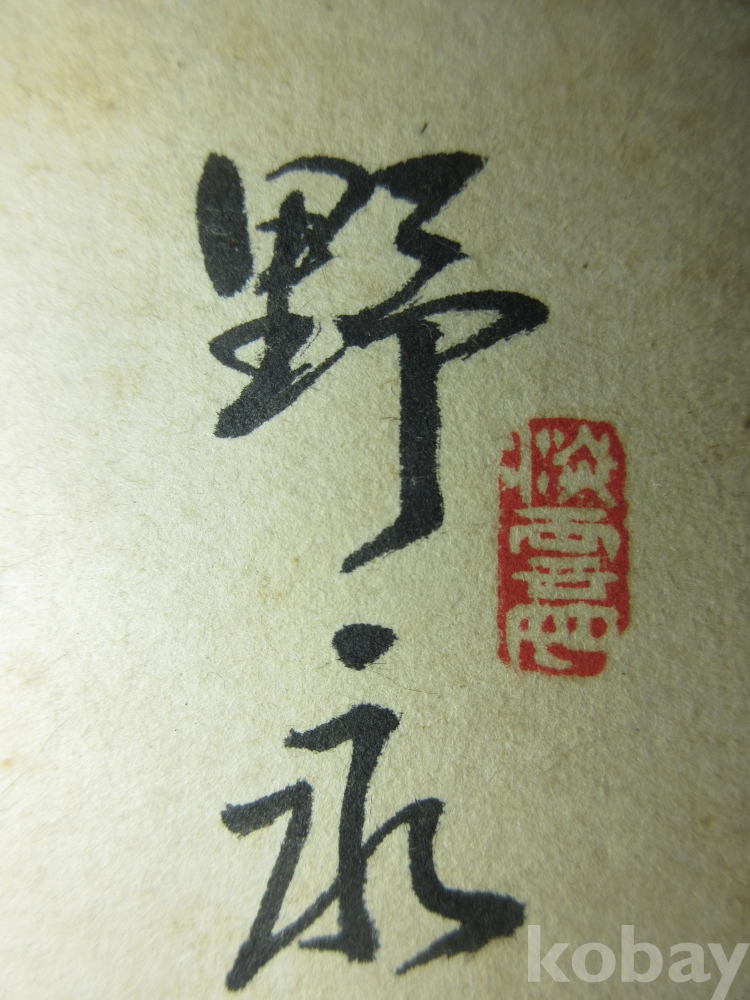 野永
kobay